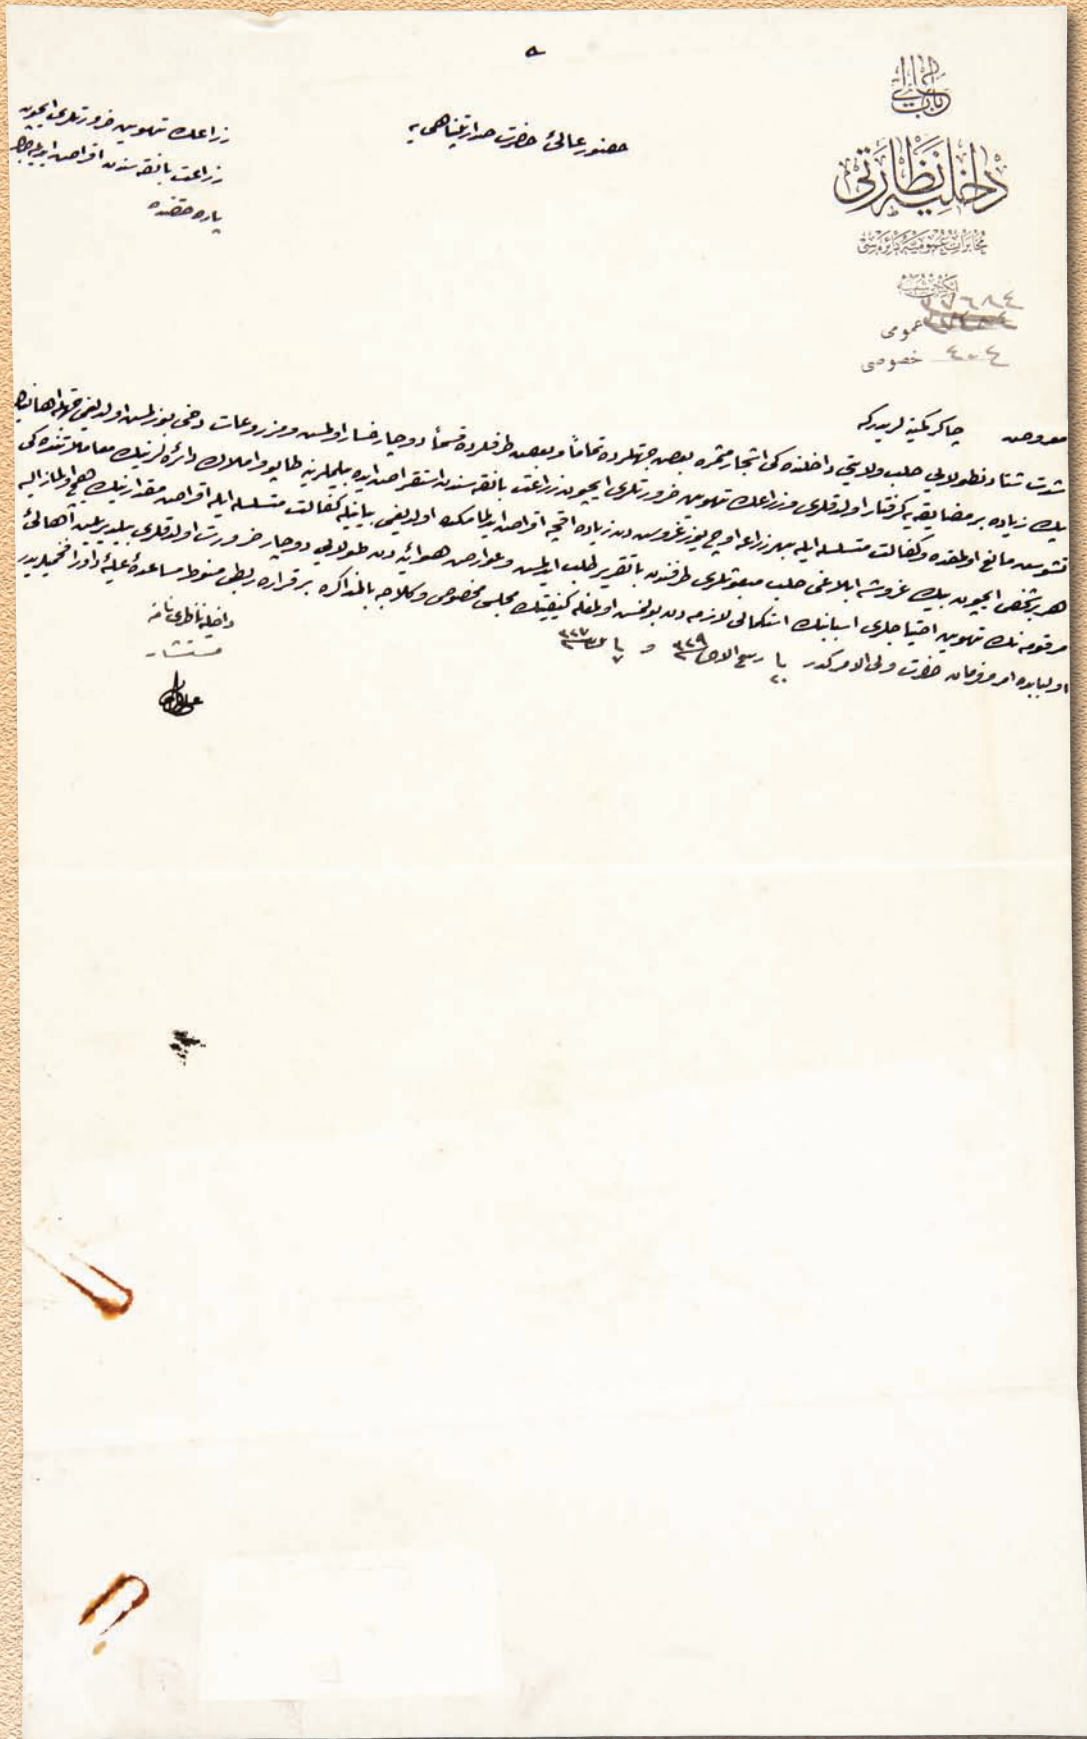 باب عالی
داخلیه نظارتی
مخابرات عمومیه دائره سی
ایکنجی شعبه
عمومی
خصوصی ٤٠٤
حضور عالئ حضرت صدارتپناهی یه
زراعك تهوین ضرورتلری ایچون
زراعت بانقه سندن اقراض ایدیله جك
پاره حقنده
معروض چاكر كمینه لریدركه
شدت شتادن طولایی حلب ولایتی داخلنده كی اشجار مثمره بعض جهتلرده تماماً و بعض طرفلرده قسماً دوچار خسار اولمش ومزروعات دخی بوزلمش اولدیغی جهتله اهالینك
پك زیاده بر مضایقه یه گرفتار اولدقلری وزراعك تهوین ضرورتلری ایچون زراعت بانقه سندن استقراض ایده بیلملرینه طاپو واملاك دائره لرینك معاملاتنده كی
تشوش مانع اولمقده وكفالت متسلسله ایله بهر زراعه اوچ یوز غروشدن زیاده اقچه اقراض ایدلمامكده اولدیغی بیانیله كفالت متسلسله ایله اقراض مقدارینك هیچ اولمازسه
هر بر شخص ایچون بیك غروشه ابلاغی حلب مبعوثلری طرفندن باتقریر طلب ایدلمش وعوارض هوائیه دن طولایی دوچار ضرورت اولدقلری بیلدیریلن اهالئ
مرقومه نك تهوین احتیاجلری اسبابنك استكمالی لازمه دن بولنمش اولمغله كیفیتك مجلس مخصوص وكلاجه بالمذاكره بر قراره ربطی منوط مساعدهٔ علیهٔ داورافخمیلریدر
اولبابده امر وفرمان حضرت ولی الامركدر فی ٢٠ ربیع الاخر ٣٢٩ و فی ٧ ٣٢٧
داخلیه ناظری نامنه
مستشار